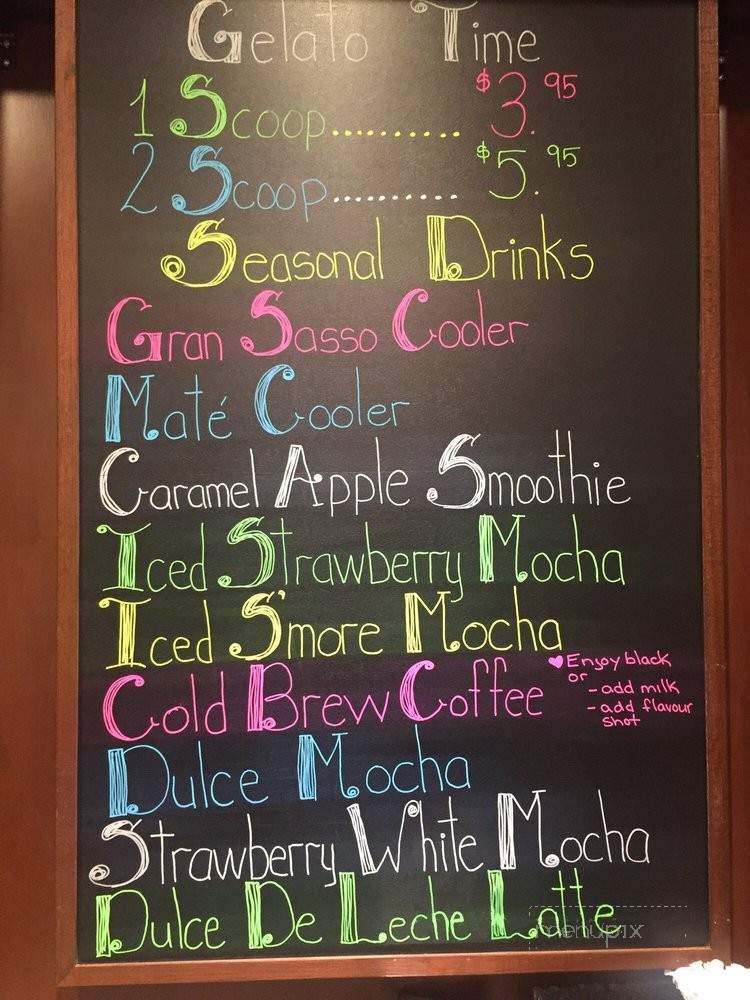 Gelato Time
1 Scoop.......... $3.95
2 Scoop.......... $5.95
Seasonal Drinks
Gran Sasso Cooler
Maté Cooler
Caramel Apple Smoothie
Iced Strawberry Mocha
Iced S'more Mocha
Cold Brew Coffee
♥Enjoy black
or
- add milk
- add flavour
shot
Dulce Mocha
Strawberry White Mocha
Dulce De Leche Latte
menupix